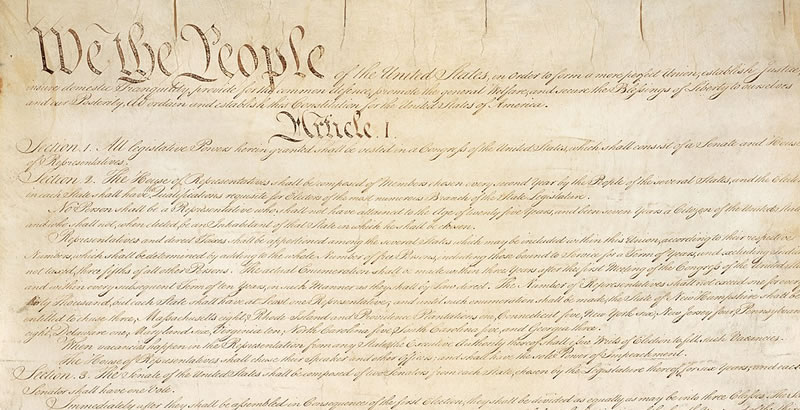 We the People of the United States, in Order to form a more perfect Union, establish Justice,
insure domestic Tranquility, provide for the common defence, promote the general Welfare, and secure the Blessings of Liberty to ourselves
and our Posterity, do ordain and establish this Constitution for the United States of America.
Article. I.
Section. 1. All legislative Powers herein granted shall be vested in a Congress of the United States, which shall consist of a Senate and House
of Representatives.
Section. 2. The House of Representatives shall be composed of Members chosen every second Year by the People of the several States, and the Elect
in each State shall have the Qualifications requisite for Electors of the most numerous Branch of the State Legislature.
No Person shall be a Representative who shall not have attained to the Age of twenty five Years, and been seven Years a Citizen of the United States
and who shall not, when elected, be an Inhabitant of that State in which he shall be chosen.
Representatives and direct Taxes shall be apportioned among the several States which may be included within this Union, according to their respective
Numbers, which shall be determined by adding to the whole Number of free Persons, including those bound to Service for a Term of Years, and excluding Indian
not taxed, three fifths of all other Persons. The actual Enumeration shall be made within three Years after the first Meeting of the Congress of the United States
and within every subsequent Term of ten Years, in such Manner as they shall by Law direct. The Number of Representatives shall not exceed one for every
thirty Thousand, but each State shall have at Least one Representative; and until such enumeration shall be made, the State of New Hampshire shall be
entitled to chuse three, Massachusetts eight, Rhode Island and Providence Plantations one, Connecticut five, New York six, New Jersey four, Pennsylvan
eight, Delaware one, Maryland six, Virginia ten, North Carolina five, South Carolina five, and Georgia three.
When vacancies happen in the Representation from any State, the Executive Authority thereof shall issue Writs of Election to fill such Vacancies.
The House of Representatives shall chuse their Speaker and other Officers; and shall have the sole Power of Impeachment.
Section. 3. The Senate of the United States shall be composed of two Senators from each State, chosen by the Legislature thereof, for six Years; and each
Senator shall have one Vote.
Immediately after they shall be assembled in Consequence of the first Election, they shall be divided as equally as may be into three Classes. The Se